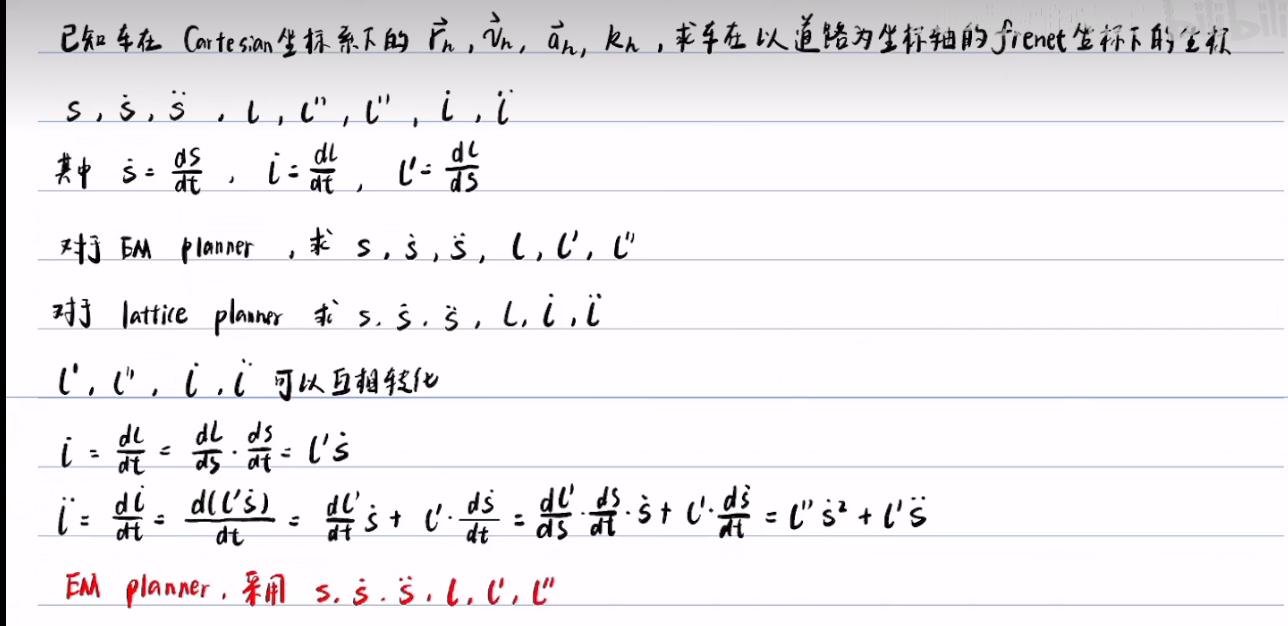 bilibili
已知车在 Cartesian坐标系下的 $\vec{r}_h$, $\vec{v}_h$, $\vec{a}_h$, $k_h$, 求车在以道路为坐标轴的frenet坐标下的坐标
s, ṡ, s̈, l, l'', l'', l̇, l̈
其中 ṡ = ds/dt, l̇ = dl/dt, l' = dl/ds
对于 EM planner, 求 s, ṡ, s̈, l, l', l''
对于 lattice planner 求 s. ṡ. s̈, l, l̇, l̈
l', l'', l̇, l̈ 可以互相转化
l̇ = dl/dt = dl/ds · ds/dt = l'ṡ
l̈ = dl̇/dt = d(l'ṡ)/dt = dl'/dt ṡ + l' · dṡ/dt = dl'/ds · ds/dt · ṡ + l' · dṡ/dt = l''ṡ² + l's̈
EM planner, 采用 s. ṡ. s̈. l, l', l''